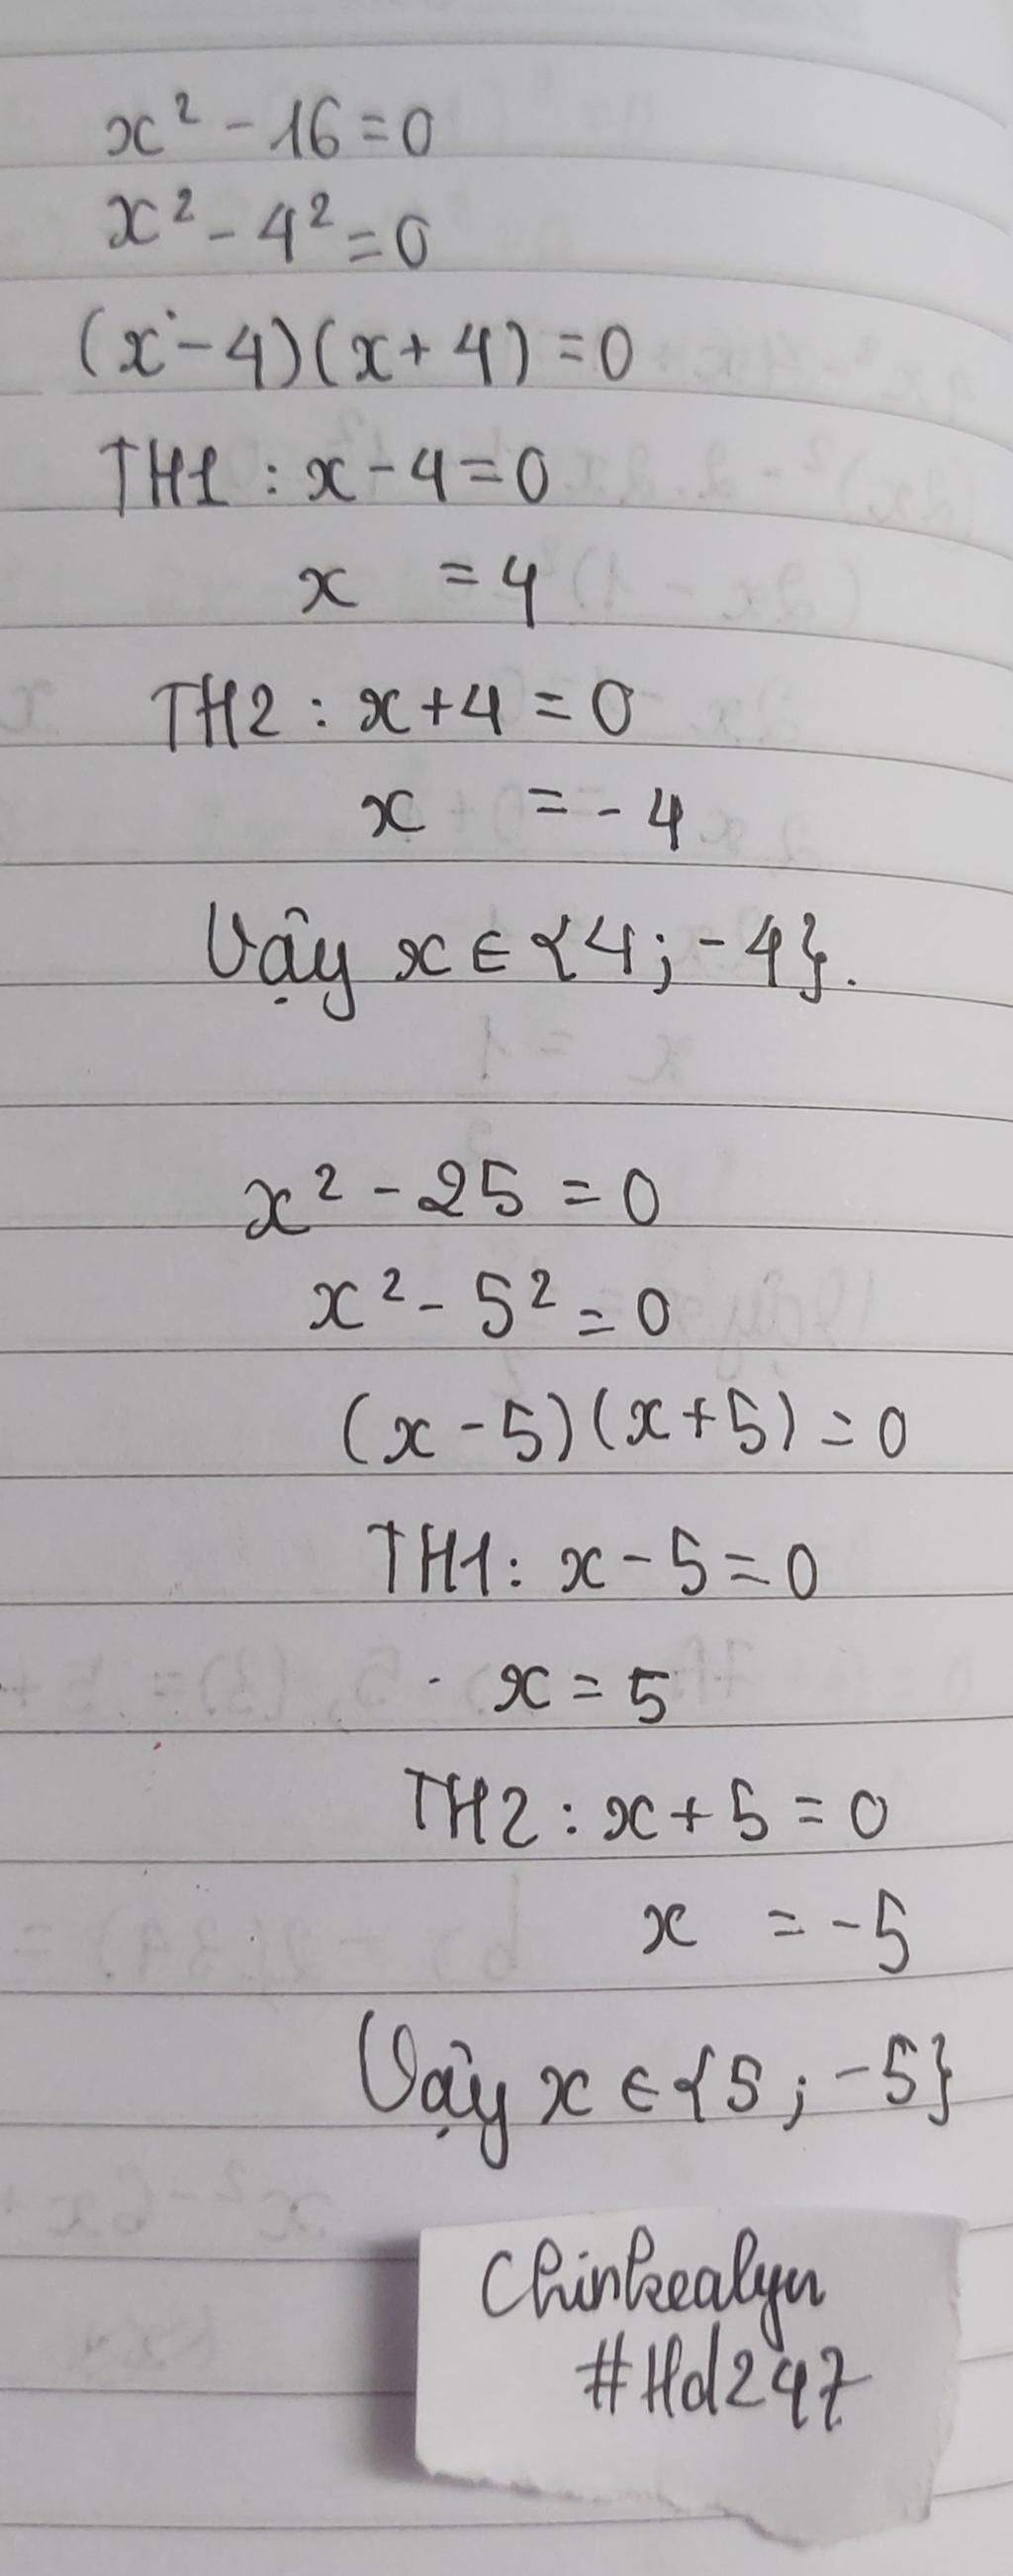 x² - 16 = 0
x² - 4² = 0
(x - 4)(x + 4) = 0
TH1 : x - 4 = 0
x = 4
TH2 : x + 4 = 0
x = - 4
Vậy x ∈ {4; - 4}.
x² - 25 = 0
x² - 5² = 0
(x - 5)(x + 5) = 0
TH1 : x - 5 = 0
x = 5
TH2 : x + 5 = 0
x = - 5
Vậy x ∈ {5 ; - 5}
#Hd247